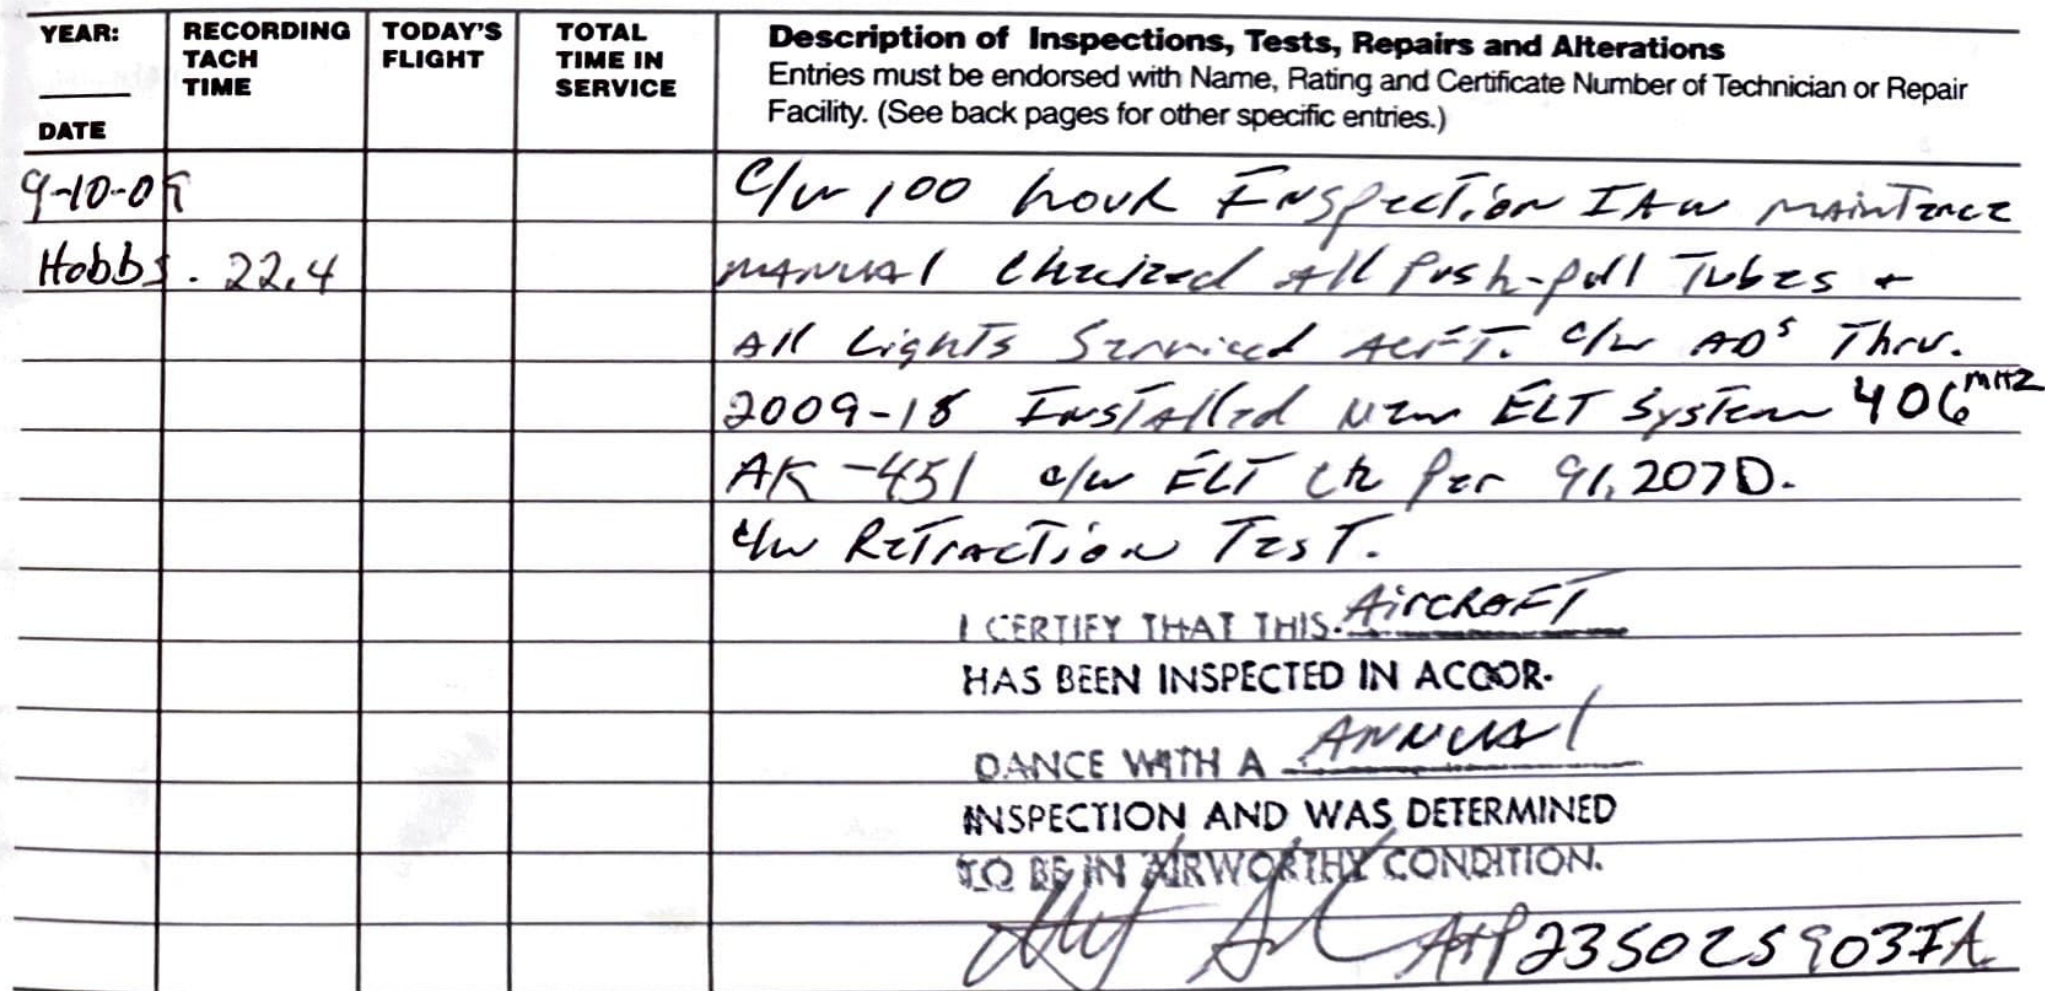 YEAR: ____ DATE
RECORDING TACH TIME
TODAY'S FLIGHT
TOTAL TIME IN SERVICE
Description of Inspections, Tests, Repairs and Alterations
Entries must be endorsed with Name, Rating and Certificate Number of Technician or Repair
Facility. (See back pages for other specific entries.)
9-10-09 C/W 100 hour Inspection IAW Maintence
Hobbs. 22.4 Manual Checked All Push-pull Tubes +
All Lights Serviced Acft. c/w ADs Thru.
2009-18 Installed New ELT System 406 MHZ
AK-451 c/w ELT Ck Per 91.207D.
c/w Retraction Test.
I CERTIFY THAT THIS Aircraft
HAS BEEN INSPECTED IN ACCOR-
DANCE WITH A Annual
INSPECTION AND WAS DETERMINED
TO BE IN AIRWORTHY CONDITION.
A+P 235025903IA